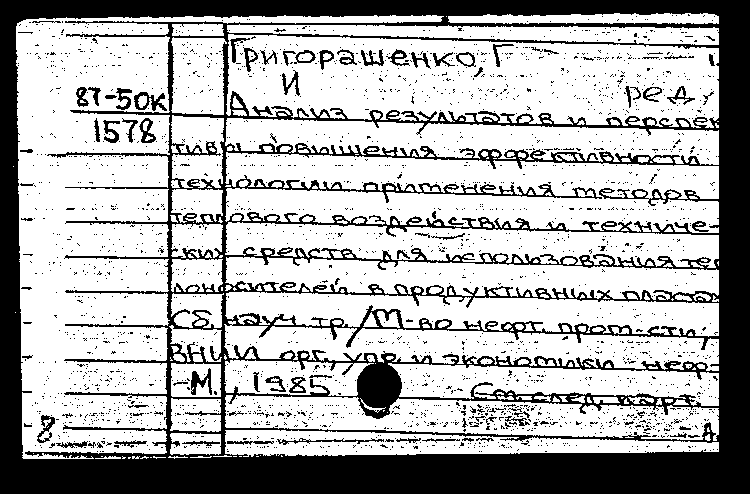 Григорашенко, Г
И ред.
87-50К
1578
Анализ результатов и перспек
тивы повышения эффективности
технологии применения методов
теплового воздействия и техниче-
ских средств для использования теп
лоносителей в продуктивных пластах
Сб. науч. тр. / М-во нефт. пром-сти,
ВНИИ орг., упр. и экономики неф-
-М., 1985
См. след. карт.
8